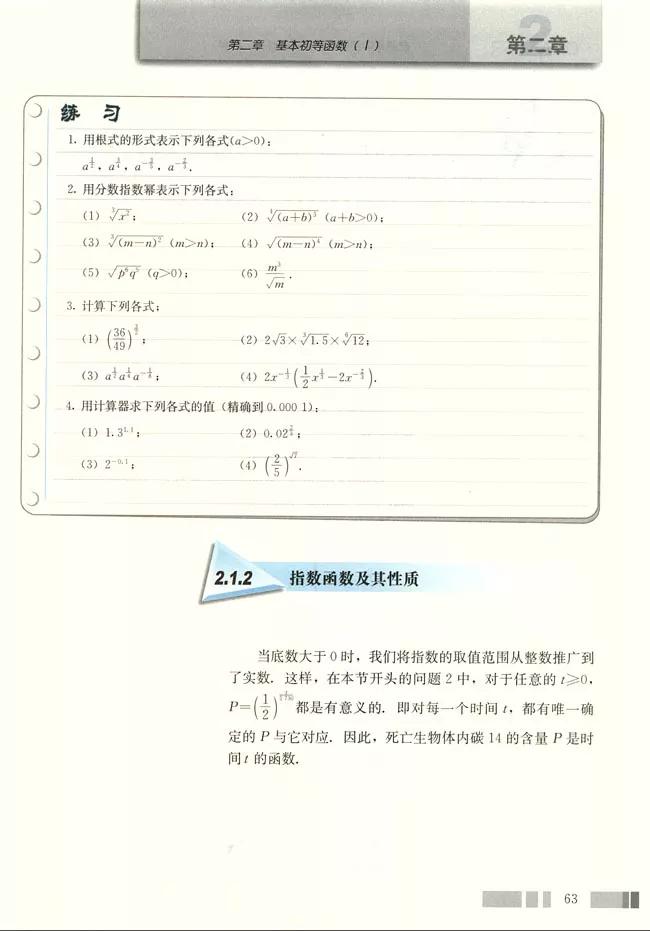 第二章 基本初等函数(Ⅰ)
第二章
练 习
1. 用根式的形式表示下列各式(a>0):
a^{1/2}, a^{3/4}, a^{-3/5}, a^{-2/3}.
2. 用分数指数幂表示下列各式:
(1) ∛(x²); (2) (a+b)³ (a+b>0);
(3) ∛((m−n)²) (m>n); (4) √((m−n)⁴) (m>n);
(5) √(p⁶q⁵) (q>0); (6) m³/√m.
3. 计算下列各式:
(1) (36/49)^{3/2}; (2) 2√3×∛1.5×⁶√12;
(3) a^{1/2}a^{1/4}a^{-1/8}; (4) 2x^{-1/3}(½x^{1/3}−2x^{-2/3}).
4. 用计算器求下列各式的值(精确到0.000 1):
(1) 1.3^{1.1}; (2) 0.02
(3) 2^{-0.1}; (4) (2/5)
2.1.2 指数函数及其性质
当底数大于0时,我们将指数的取值范围从整数推广到
了实数. 这样,在本节开头的问题2中,对于任意的 t≥0,
P=(1/2) 都是有意义的. 即对每一个时间 t,都有唯一确
定的 P 与它对应. 因此,死亡生物体内碳14的含量 P 是时
间 t 的函数.
63